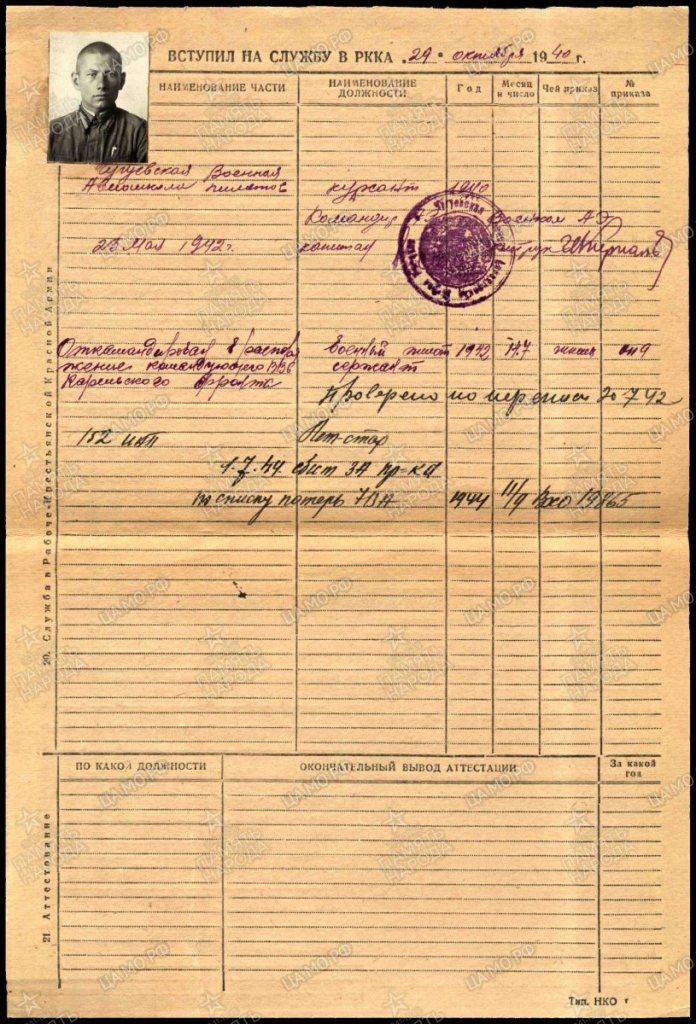 ВСТУПИЛ НА СЛУЖБУ В РККА „29“ октября 1940 г.
НАИМЕНОВАНИЕ ЧАСТИ
НАИМЕНОВАНИЕ ДОЛЖНОСТИ
Год
Месяц и число
Чей приказ
№ приказа
Чугуевская Военная
Авиошкола пилотов
курсант 1940
Командир Военком АЭ
26 Мая 1942г. капитан
Чугуевская
Откомандирован в распоря
жение командующего ВВС
Карельского фронта
военный пилот 1942
сержант
Проверено по переписи 42
152 иап Лет-стар
1.7.44 сбит ЗА пр-ка
по списку потерь 7ВА 1944 11/9 Вхо 19865
20. Служба в Рабоче-Крестьянской Красной Армии
ПО КАКОЙ ДОЛЖНОСТИ
ОКОНЧАТЕЛЬНЫЙ ВЫВОД АТТЕСТАЦИИ
За какой год
21. Аттестование
Тип. НКО
ЦАМО.РФ
ПАМЯТЬ НАРОДА